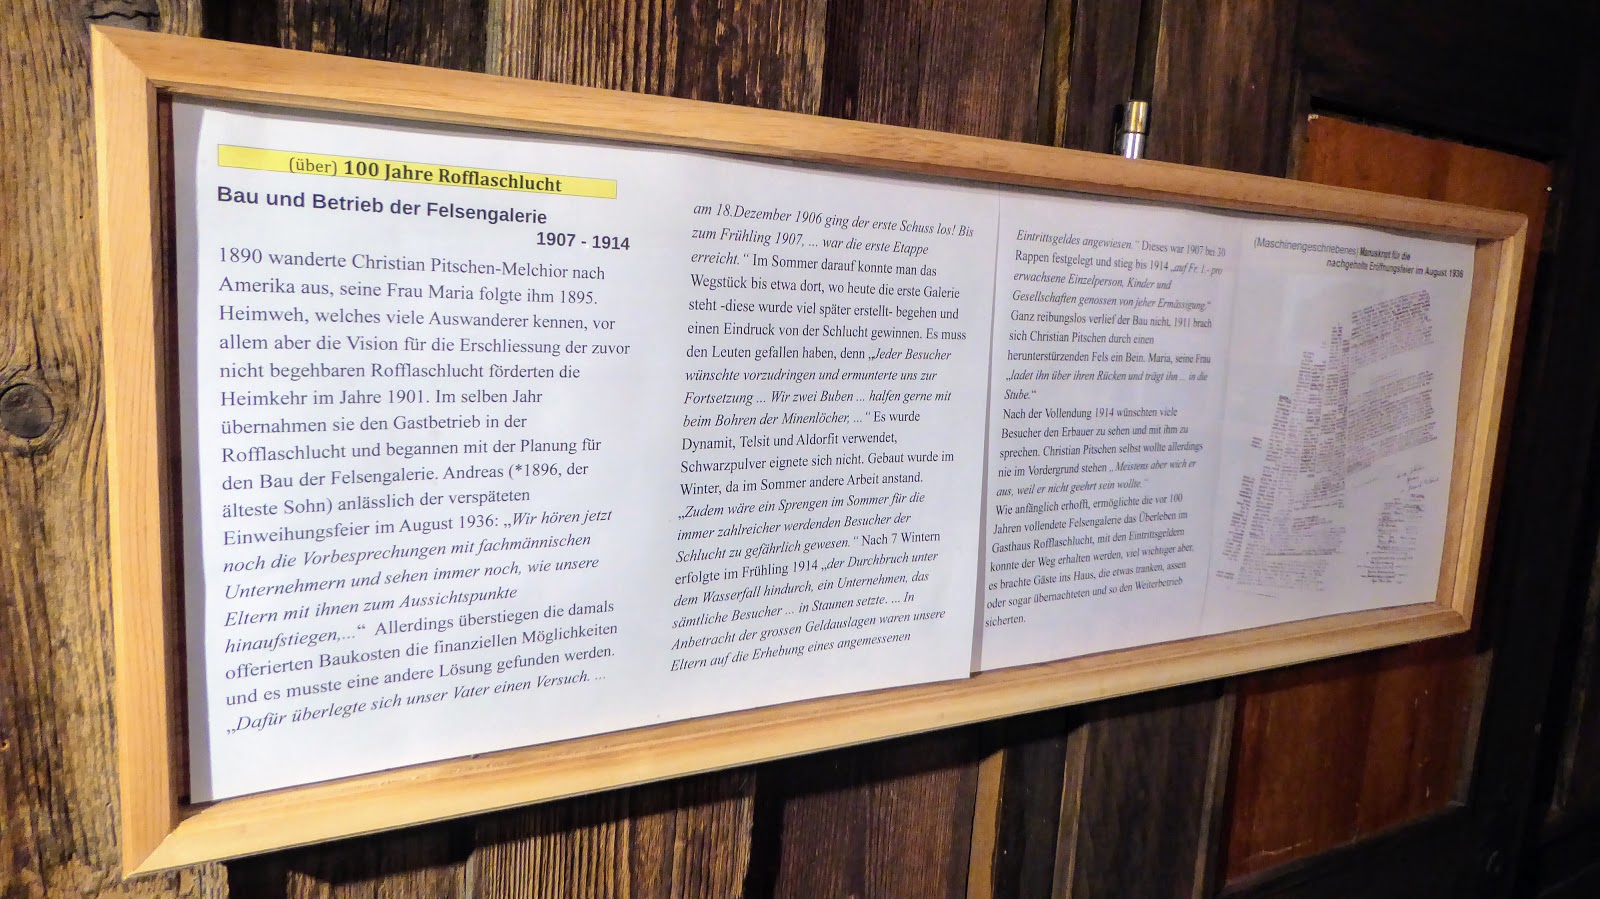 (über) 100 Jahre Rofflaschlucht
Bau und Betrieb der Felsengalerie
1907 - 1914
1890 wanderte Christian Pitschen-Melchior nach
Amerika aus, seine Frau Maria folgte ihm 1895.
Heimweh, welches viele Auswanderer kennen, vor
allem aber die Vision für die Erschliessung der zuvor
nicht begehbaren Rofflaschlucht förderten die
Heimkehr im Jahre 1901. Im selben Jahr
übernahmen sie den Gastbetrieb in der
Rofflaschlucht und begannen mit der Planung für
den Bau der Felsengalerie. Andreas (*1896, der
älteste Sohn) anlässlich der verspäteten
Einweihungsfeier im August 1936: „Wir hören jetzt
noch die Vorbesprechungen mit fachmännischen
Unternehmern und sehen immer noch, wie unsere
Eltern mit ihnen zum Aussichtspunkte
hinaufstiegen,...“ Allerdings überstiegen die damals
offerierten Baukosten die finanziellen Möglichkeiten
und es musste eine andere Lösung gefunden werden.
„Dafür überlegte sich unser Vater einen Versuch. ...
am 18.Dezember 1906 ging der erste Schuss los! Bis
zum Frühling 1907, ... war die erste Etappe
erreicht.“ Im Sommer darauf konnte man das
Wegstück bis etwa dort, wo heute die erste Galerie
steht -diese wurde viel später erstellt- begehen und
einen Eindruck von der Schlucht gewinnen. Es muss
den Leuten gefallen haben, denn „Jeder Besucher
wünschte vorzudringen und ermunterte uns zur
Fortsetzung ... Wir zwei Buben ... halfen gerne mit
beim Bohren der Minenlöcher, ...“ Es wurde
Dynamit, Telsit und Aldorfit verwendet,
Schwarzpulver eignete sich nicht. Gebaut wurde im
Winter, da im Sommer andere Arbeit anstand.
„Zudem wäre ein Sprengen im Sommer für die
immer zahlreicher werdenden Besucher der
Schlucht zu gefährlich gewesen.“ Nach 7 Wintern
erfolgte im Frühling 1914 „der Durchbruch unter
dem Wasserfall hindurch, ein Unternehmen, das
sämtliche Besucher ... in Staunen setzte. ... In
Anbetracht der grossen Geldauslagen waren unsere
Eltern auf die Erhebung eines angemessenen
Eintrittsgeldes angewiesen.“ Dieses war 1907 bei 30
Rappen festgelegt und stieg bis 1914 „auf Fr. 1.- pro
erwachsene Einzelperson, Kinder und
Gesellschaften genossen von jeher Ermässigung.“
Ganz reibungslos verlief der Bau nicht, 1911 brach
sich Christian Pitschen durch einen
herunterstürzenden Fels ein Bein. Maria, seine Frau
„ladet ihn über ihren Rücken und trägt ihn ... in die
Stube.“
Nach der Vollendung 1914 wünschten viele
Besucher den Erbauer zu sehen und mit ihm zu
sprechen. Christian Pitschen selbst wollte allerdings
nie im Vordergrund stehen „Meistens aber wich er
aus, weil er nicht geehrt sein wollte.“
Wie anfänglich erhofft, ermöglichte die vor 100
Jahren vollendete Felsengalerie das Überleben im
Gasthaus Rofflaschlucht, mit den Eintrittsgeldern
konnte der Weg erhalten werden, viel wichtiger aber,
es brachte Gäste ins Haus, die etwas tranken, assen
oder sogar übernachteten und so den Weiterbetrieb
sicherten.
(Maschinengeschriebenes) Manuskript für die
nachgeholte Eröffnungsfeier im August 1936